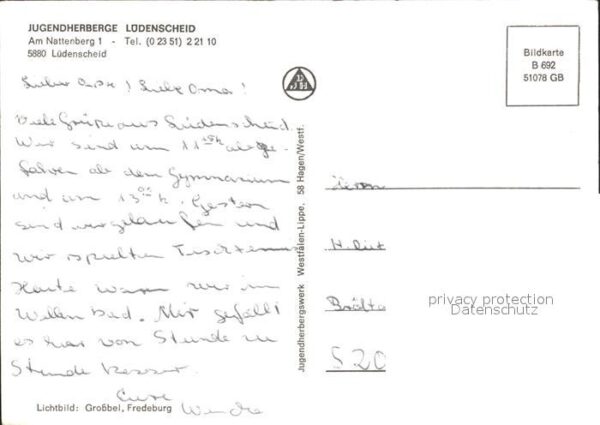 JUGENDHERBERGE LÜDENSCHEID
Am Nattenberg 1 - Tel. (0 23 51) 2 21 10
5880 Lüdenscheid
Bildkarte
B 692
51078 GB
DJH
Lieber Opa! Liebe Oma!
Viele Grüße aus Lüdenscheid.
Wir sind um 11 abge-
fahren ab dem Gymnasium
und um 13⁰⁰ h. Gestern
sind wir gelaufen und
wir spielten Tischtennis
Heute waren wir im
Wellenbad. Mir gefällt
es hier von Stunde zu
Stunde besser.
Eure
Lichtbild: Großbel, Fredeburg
Jugendherbergswerk Westfalen-Lippe, 58 Hagen/Westf.
Herrn
privacy protection
Datenschutz